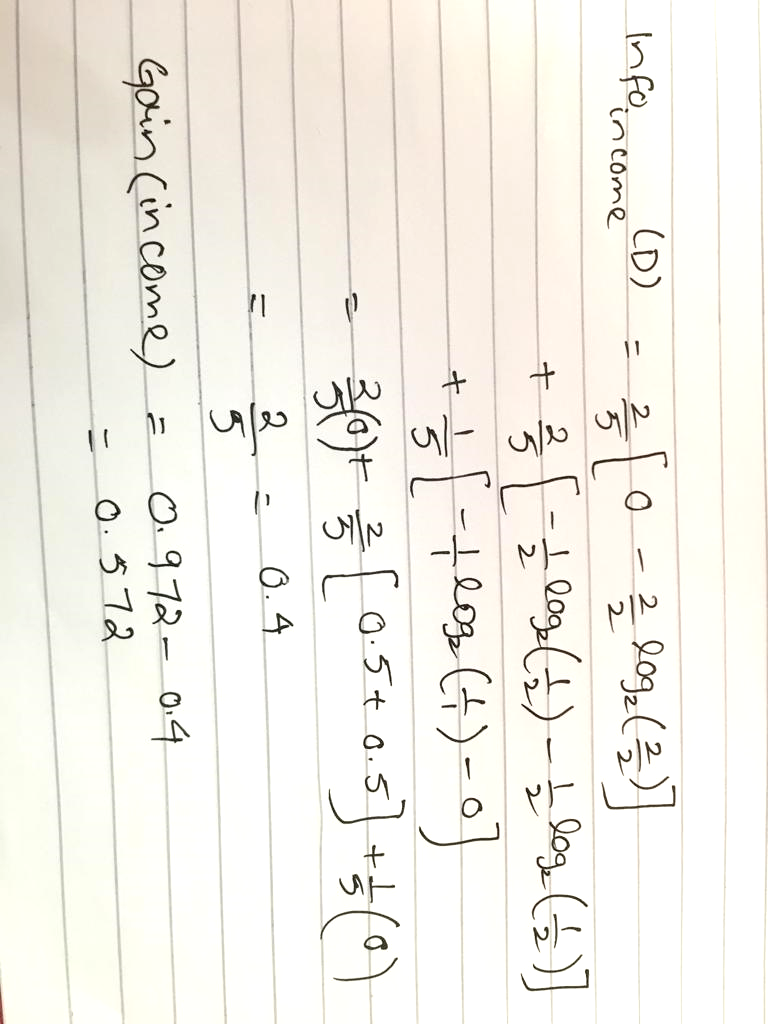 Info income (D) = 2/5 [ 0 - 2/2 log2(2/2) ]
+ 2/5 [ -1/2 log2(1/2) - 1/2 log2(1/2) ]
+ 1/5 [ -1/1 log2(1/1) - 0 ]
= 2/5(0) + 2/5 [ 0.5 + 0.5 ] + 1/5 (0)
= 2/5 = 0.4
Gain(income) = 0.972 - 0.4
= 0.572